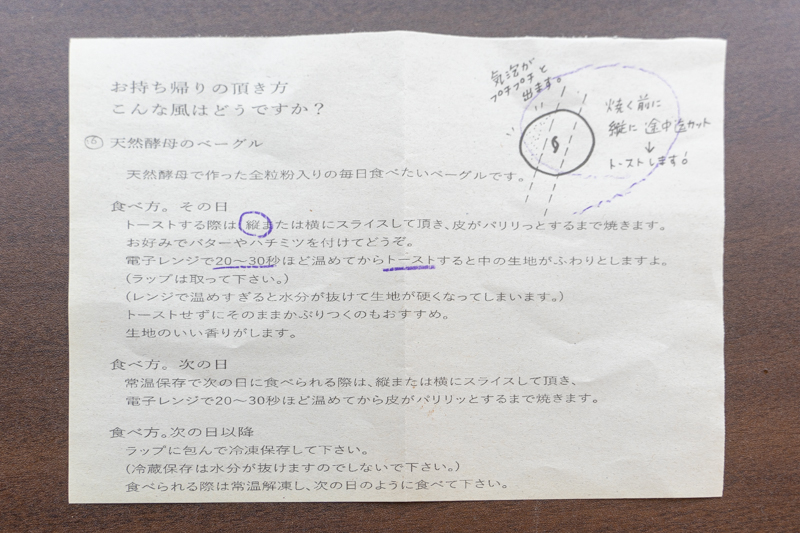 お持ち帰りの頂き方
こんな風はどうですか?
天然酵母のベーグル
天然酵母で作った全粒粉入りの毎日食べたいベーグルです。
食べ方。その日
トーストする際は縦または横にスライスして頂き、皮がパリリっとするまで焼きます。
お好みでバターやハチミツを付けてどうぞ。
電子レンジで20〜30秒ほど温めてからトーストすると中の生地がふわりとしますよ。
(ラップは取って下さい。)
(レンジで温めすぎると水分が抜けて生地が硬くなってしまいます。)
トーストせずにそのままかぶりつくのもおすすめ。
生地のいい香りがします。
食べ方。次の日
常温保存で次の日に食べられる際は、縦または横にスライスして頂き、
電子レンジで20〜30秒ほど温めてから皮がパリリッとするまで焼きます。
食べ方。次の日以降
ラップに包んで冷凍保存して下さい。
(冷蔵保存は水分が抜けますのでしないで下さい。)
食べられる際は常温解凍し、次の日のように食べて下さい。
気泡が
プチプチと
出ます。
焼く前に
縦に 途中迄カット
↓
トーストします!